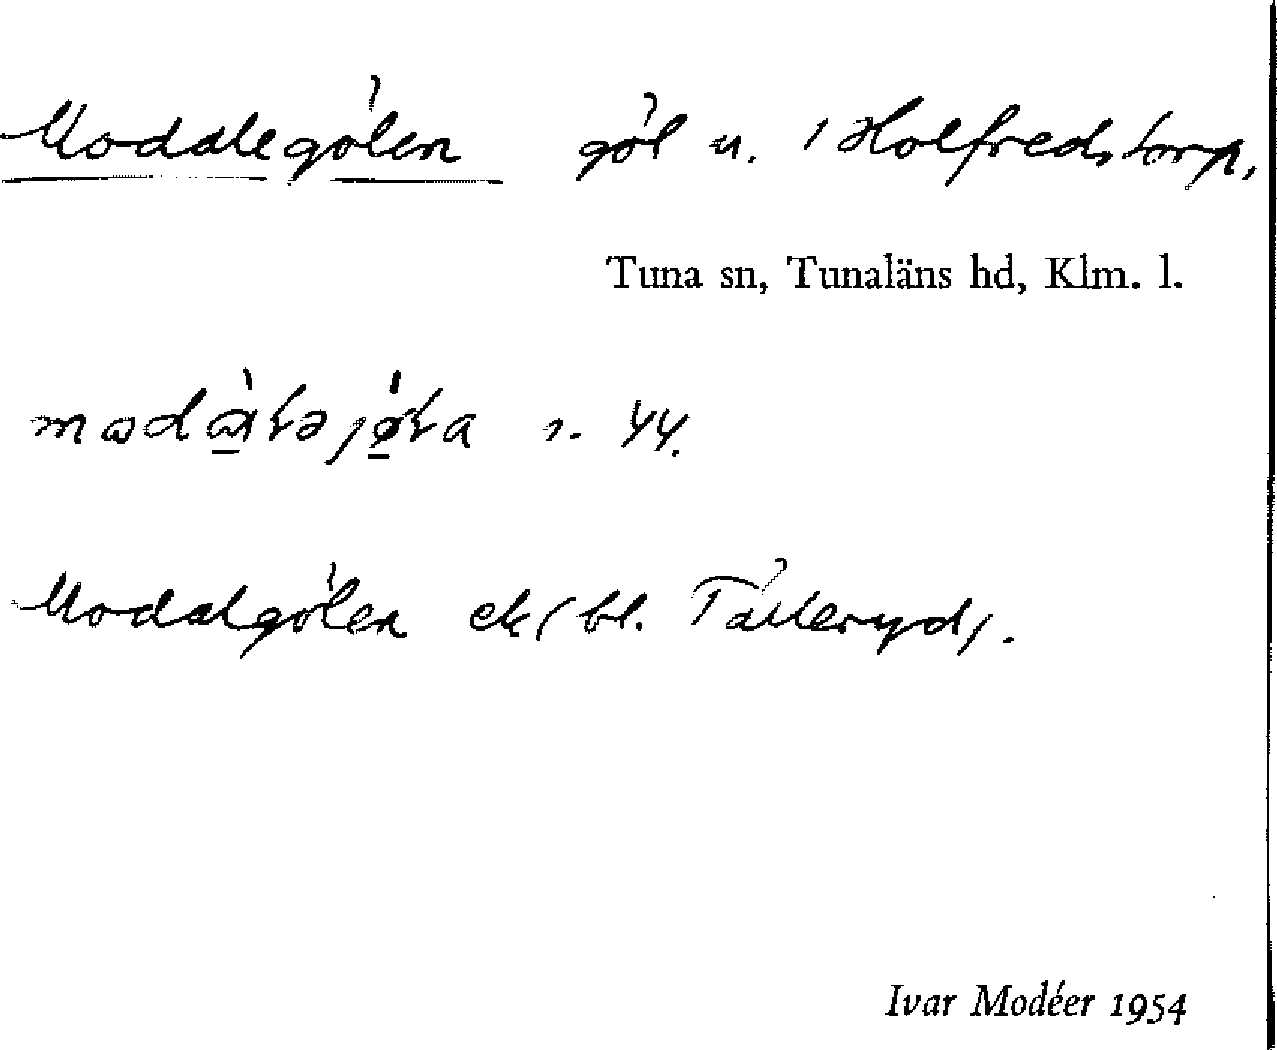 Modalegölen göl u. Holfredstorp,
Tuna sn, Tunaläns hd, Klm. l.
s. 44.
Modalgölen ek bl. Tälleryd.
Ivar Modéer 1954